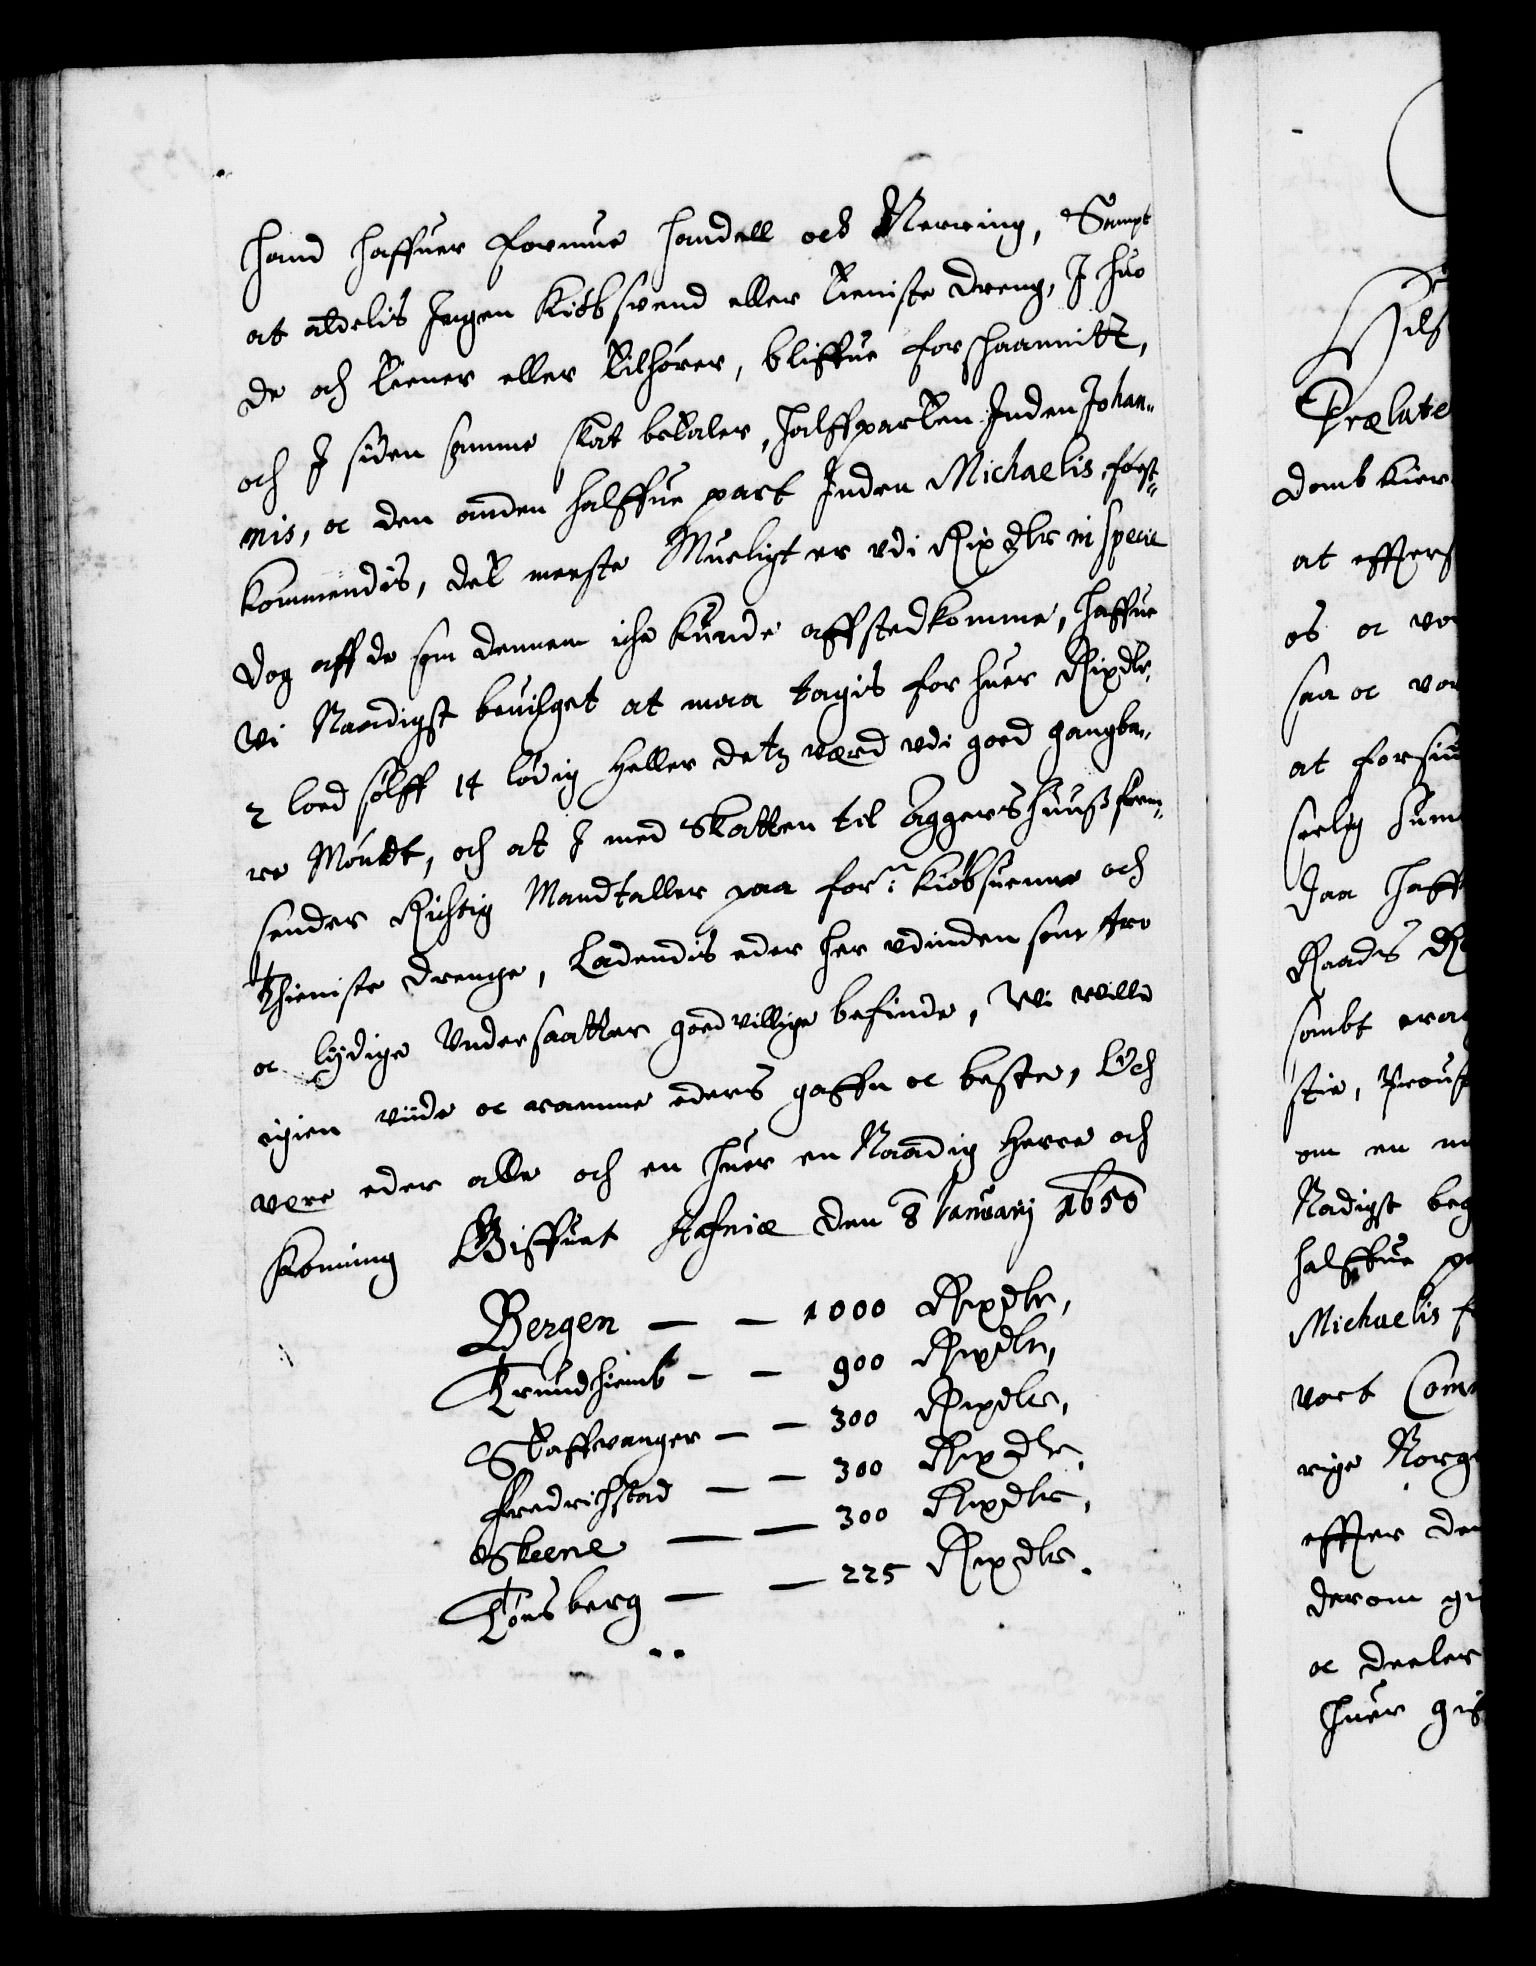 hand haffuer formue handell och Nerring, Sampt
at aldelis Ingen Kiøbsvend eller tieniste dreng, I huo
de och tiener eller tilhører, bliffue forschaanitt,
och I siden samme skat betaler, halffparten Inden Johan-
nis, oc den anden halffue part Inden Michaelis først-
kommendis, det meeste Mueligt er vdi Rix dlr in specie
Dog aff de som dennem iche kunde affstedkomme, haffue
Wi Naadigst beuilget at maa tagis for huer Rixdlr,
2 loed sølff 14 lødig heller detz værd vdi goed gangba-
re Møndt, och at I med Skatten til Aggershuuss frem-
sender Richtig Mandtaller paa for.ne kiøbsuenne och
thieniste drenge, Ladendis eder her vdinden som tro
oc lydige Vndersaatter goedvillige befinde, Wi wille
igien viide oc ramme eders gaffn oc beste, Och
vere eder alle och en huer en Naadig Herre och
Konning Giffuet Hafniæ den 8 Januarij 1650
Bergen — — 1000 Rixdlr,
Trundhiemb — — 900 Rixdlr,
Staffwanger — — 300 Rixdlr,
Fredrichstad — — 300 Rixdlr,
Skeene — — 300 Rixdlr,
Tønsberg — — 225 Rixdlr.
Prælate
domb kier
at effters
os oc vor
saa oc vor
at forsiu
Daa haff
Raads R
sambt
om en
Nadigst beg
halffue pa
Michaelis f
vort Com
rige Norg
effter den
derom gi
oc deeler
huer gif